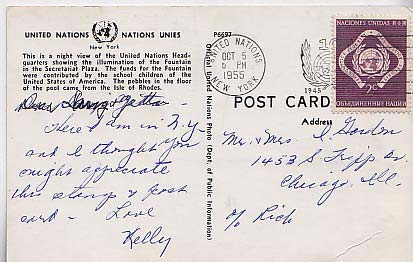 UNITED NATIONS NATIONS UNIES
New York
This is a night view of the United Nations Head-
quarters showing the illumination of the Fountain
in the Secretariat Plaza. The funds for the Fountain
were contributed by the school children of the
United States of America. The pebbles in the floor
of the pool came from the Isle of Rhodes.
Dear
Here I am in N.Y.
and I thought you
might appreciate
this stamp & post
card - Love
Kelly
P6697
Official United Nations Photo (Dept. of Public Information)
UNITED NATIONS
OCT 5
6 PM
1955
NEW YORK
1945
NACIONES UNIDAS
2c
ОБЪЕДИНЕННЫЕ НАЦИИ
POST CARD
Address
Mr. & Mrs. I Gordon
1453 S
Chicago, Ill.
c/o Rich